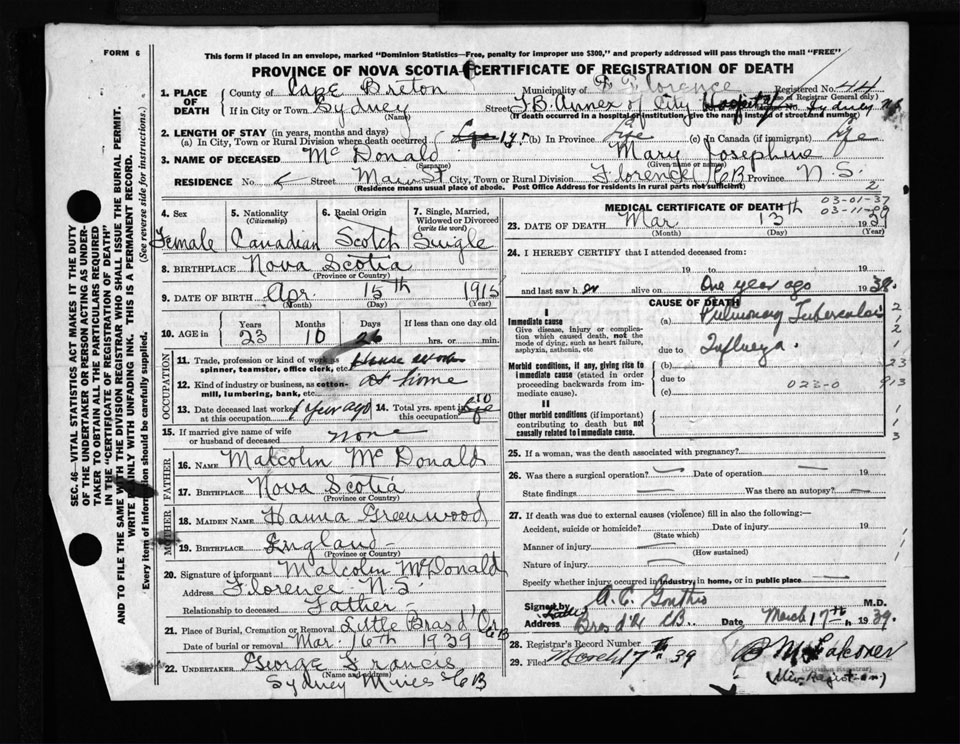 FORM 6
This form if placed in an envelope, marked "Dominion Statistics—Free, penalty for improper use $300," and properly addressed will pass through the mail "FREE"
PROVINCE OF NOVA SCOTIA—CERTIFICATE OF REGISTRATION OF DEATH
1. PLACE OF DEATH
County of Cape Breton Municipality of Florence Registered No. 44
(Use of Registrar General only)
If in City or Town Sydney Street T.B. Annex of City Hospital Sydney N.S.
(Name) (If death occurred in a hospital or institution, give the name instead of street and number)
2. LENGTH OF STAY (in years, months and days)
(a) In City, Town or Rural Division where death occurred 1 yr. (b) In Province Life (c) In Canada (if immigrant) Life
3. NAME OF DECEASED McDonald Mary Josephine
(Surname) (Given name or names)
RESIDENCE No. Street Main St City, Town or Rural Division Florence CB Province N.S.
(Residence means usual place of abode. Post Office Address for residents in rural parts not sufficient) 2
4. Sex 5. Nationality (Citizenship) 6. Racial Origin 7. Single, Married, Widowed or Divorced (write the word)
Female Canadian Scotch Single
8. BIRTHPLACE Nova Scotia
(Province or Country)
9. DATE OF BIRTH Apr. 15th 1915
(Month) (Day) (Year)
10. AGE in Years Months Days If less than one day old
23 10 26 hrs. or min.
OCCUPATION
11. Trade, profession or kind of work as spinner, teamster, office clerk, etc. House work
12. Kind of industry or business, as cotton-mill, lumbering, bank, etc. at home
13. Date deceased last worked at this occupation 1 year ago 14. Total yrs. spent in this occupation 10
15. If married give name of wife or husband of deceased none
FATHER
16. NAME Malcolm McDonald
17. BIRTHPLACE Nova Scotia
(Province or Country)
MOTHER
18. MAIDEN NAME Hanna Greenwood
19. BIRTHPLACE England
(Province or Country)
20. Signature of informant Malcolm McDonald
Address Florence N.S.
Relationship to deceased Father
21. Place of Burial, Cremation or Removal Little Bras d'Or CB
Date of burial or removal Mar. 16th 1939
22. UNDERTAKER George Francis
(Name and address)
Sydney Mines CB
MEDICAL CERTIFICATE OF DEATH
03-01-37
23. DATE OF DEATH Mar 13th 1939
(Month) (Day) (Year)
24. I HEREBY CERTIFY that I attended deceased from:
19 to 19
and last saw her alive on One year ago 1938.
CAUSE OF DEATH
I
Immediate cause
Give disease, injury or complication which caused death, not the mode of dying, such as heart failure, asphyxia, asthenia, etc
(a) Pulmonary Tuberculosis
due to Influenza.
Morbid conditions, if any, giving rise to immediate cause (stated in order proceeding backwards from immediate cause)
(b)
due to
(c) 023-0
23
913
II
Other morbid conditions (if important) contributing to death but not causally related to immediate cause.
25. If a woman, was the death associated with pregnancy?
26. Was there a surgical operation? Date of operation 19
State findings Was there an autopsy?
27. If death was due to external causes (violence) fill in also the following:—
Accident, suicide or homicide? Date of injury 19
(State which)
Manner of injury
(How sustained)
Nature of injury
Specify whether injury occurred in industry, in home, or in public place
Signed by M.D.
Address Bras d'Or CB. Date March 17th 1939.
28. Registrar's Record Number
29. Filed March 17th 39
(Division Registrar)
SEC. 46—VITAL STATISTICS ACT MAKES IT THE DUTY OF THE UNDERTAKER OR PERSON ACTING AS UNDERTAKER TO OBTAIN ALL THE PARTICULARS REQUIRED IN THE "CERTIFICATE OF REGISTRATION OF DEATH" AND TO FILE THE SAME WITH THE DIVISION REGISTRAR WHO SHALL ISSUE THE BURIAL PERMIT.
WRITE PLAINLY WITH UNFADING INK. THIS IS A PERMANENT RECORD.
Every item of information should be carefully supplied. (See reverse side for instructions.)